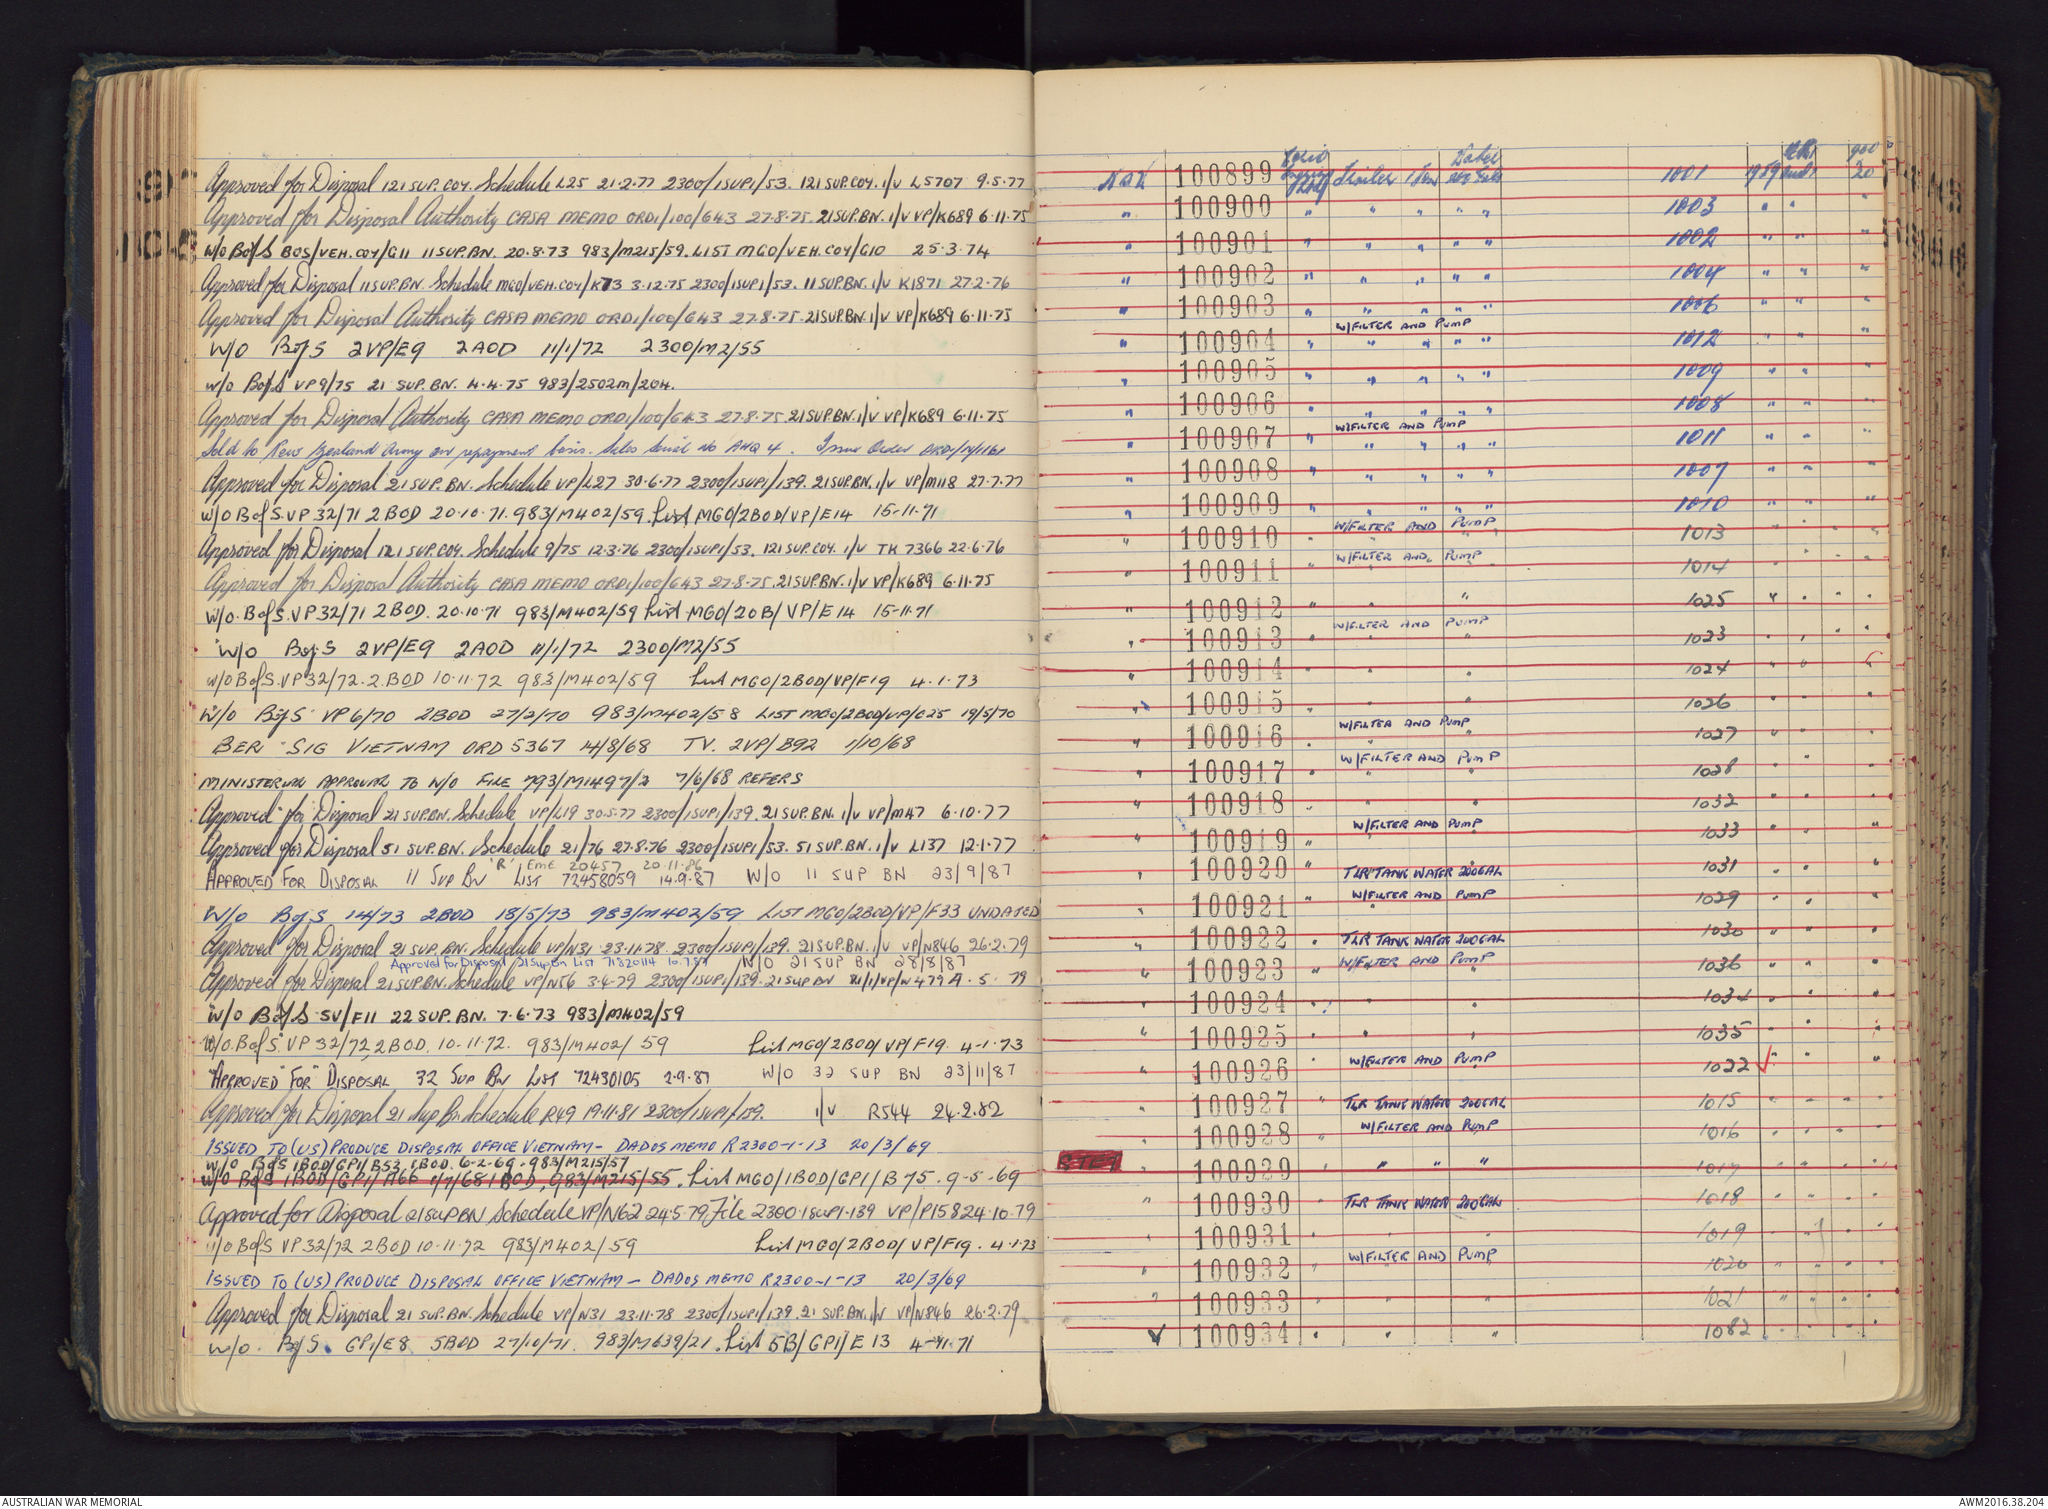 Approved for Disposal 121 SUP. COY. Schedule L25 21.2.77 2300/1SUP1/53. 121 SUP. COY. I/V L5707 9.5.77
Approved for Disposal Authority CASA MEMO ORD1/100/643 27.8.75. 21 SUP. BN. I/V VP/K689 6.11.75
W/O B of S BOS/VEH. COY/G11 11 SUP. BN. 20.8.73 983/M215/59. LIST MGO/VEH. COY/G10 25.3.74
Approved for Disposal 11 SUP. BN. Schedule MGO/VEH. COY/K73 3.12.75 2300/1SUP1/53. 11 SUP. BN. I/V K1871 27.2.76
Approved for Disposal Authority CASA MEMO ORD1/100/643 27.8.75. 21 SUP. BN. I/V VP/K689 6.11.75
W/O B of S 2VP/E9 2AOD 11/1/72 2300/M2/55
W/O B of S VP9/75 21 SUP. BN. 4.4.75 983/2502M/204.
Approved for Disposal Authority CASA MEMO ORD1/100/643 27.8.75 21 SUP. BN. I/V VP/K689 6.11.75
Sold to New Zealand Army on repayment basis. Sales Serial No AHQ 4. Issue Order ORD/N/1161
Approved for Disposal 21 SUP. BN. Schedule VP/L27 30.6.77 2300/1SUP1/139. 21 SUP. BN. I/V VP/M118 27.7.77
W/O B of S. VP 32/71 2 BOD 20.10.71. 983/M402/59. List MGO/2BOD/VP/E14 15.11.71
Approved for Disposal 121 SUP. COY. Schedule 9/75 12.3.76 2300/1SUP1/53. 121 SUP. COY. I/V TK 7366 22.6.76
Approved for Disposal Authority CASA MEMO ORD1/100/643 27.8.75. 21 SUP. BN. I/V VP/K689 6.11.75
W/O. B of S. VP 32/71 2 BOD. 20.10.71 983/M402/59 List MGO/20B/VP/E14 15-11.71
W/O B of S 2VP/E9 2AOD 11/1/72 2300/M2/55
W/O B of S. VP 32/72. 2. BOD 10.11.72 983/M402/59 List MGO/2BOD/VP/F19 4.1.73
W/O B of S VP 6/70 2BOD 27/2/70 983/M402/58 LIST MGO/2BOD/VP/C25 19/5/70
BER SIG VIETNAM ORD 5367 14/8/68 TV. 2VP/B92 1/10/68
MINISTERIAL APPROVAL TO W/O FILE 793/M1497/2 7/6/68 REFERS
Approved for Disposal 21 SUP. BN. Schedule VP/L19 30.5.77 2300/1SUP1/139. 21 SUP. BN. I/V VP/M47 6.10.77
Approved for Disposal 51 SUP. BN. Schedule 21/76 27.8.76 2300/1SUP1/53. 51 SUP. BN. I/V L137 12.1.77
'R' EME 20457 20.11.86
APPROVED FOR DISPOSAL 11 SUP BN LIST 72458059 14.9.87 W/O 11 SUP BN 23/9/87
W/O B of S 14/73 2BOD 18/5/73 983/M402/59 LIST MGO/2BOD/VP/F33 UNDATED
Approved for Disposal 21 SUP. BN. Schedule VP/N31 23.11.78. 2300/1SUP1/139. 21 SUP. BN. I/V VP/N846 26.2.79
Approved for Disposal 21 Sup Bn List 7182014 W/O 21 SUP BN 28/8/87
Approved for Disposal 21 SUP. BN. Schedule VP/N56 3.4.79 2300/1SUP1/139. 21 SUP BN 479A. 5. 79
W/O B of S 5V/F11 22 SUP. BN. 7.6.73 983/M402/59
W/O. B of S VP 32/72 2 BOD. 10.11.72. 983/M402/59 List MGO/2BOD/VP/F19. 4-1.73
APPROVED FOR DISPOSAL 32 SUP BN LIST 72430105 2.9.87 W/O 32 SUP BN 23/11/87
Approved for Disposal 21 Sup Bn Schedule R49 19.11.81 2300/1SUP1/139. I/V R544 24.2.82
ISSUED TO (US) PRODUCE DISPOSAL OFFICE VIETNAM - DADOS MEMO R2300-1-13 20/3/69
W/O B of S 1BOD/GP1/B53 1BOD. 6-2-69. 983/M215/57
W/O B of S 1BOD/GP1/A66 1/7/68 1BOD, 983/M215/55. List MGO/1BOD/GP1/B75. 9-5.69
Approved for Disposal 21 SUP BN Schedule VP/N62 24.5.79 File 2300.1SUP1.139 VP/P158 24.10.79
W/O B of S VP 32/72 2 BOD 10.11.72 983/M402/59 List MGO/2BOD/VP/F19. 4.1.73
ISSUED TO (US) PRODUCE DISPOSAL OFFICE VIETNAM - DADOS MEMO R2300-1-13 20/3/69
Approved for Disposal 21 SUP. BN. Schedule VP/N31 23.11.78 2300/1SUP1/139. 21 SUP. BN. I/V VP/N846 26.2.79
W/O. B of S. GP1/E8 5BOD 27/10/71. 983/M639/21. List 5B/GP1/E13 4-11.71
100899 Trailer 1 Ton Water 200 Gals 1001 1959 20
" 100900 " " " " " 1003 " " "
" 100901 " " " " " 1002 " " "
" 100902 " " " " " 1004 " " "
" 100903 " " " " " 1006 " " "
W/FILTER AND PUMP
" 100904 " " " " " 1012 " " "
" 100905 " " " " " 1009 " " "
" 100906 " " " " " 1008 " " "
W/FILTER AND PUMP
" 100907 " " " " " 1011 " " "
" 100908 " " " " " 1007 " " "
" 100909 " " " " " 1010 " " "
W/FILTER AND PUMP
" 100910 " " 1013 " "
W/FILTER AND PUMP
" 100911 " " 1014 " "
" 100912 " " " 1025 " " " "
W/FILTER AND PUMP
" 100913 " " " 1023 " " " "
" 100914 " " " 1024 " "
" 100915 " " 1026 " "
W/FILTER AND PUMP
" 100916 " " " 1027 " " "
W/FILTER AND PUMP
" 100917 " " " 1028 " " "
" 100918 " " " 1032 " " "
W/FILTER AND PUMP
" 100919 " 1033 " " "
" 100920 " TLR TANK WATER 200GAL 1031 " "
W/FILTER AND PUMP
" 100921 " " 1029 " "
" 100922 " TLR TANK WATER 200GAL 1030 " "
W/FILTER AND PUMP
" 100923 " " " 1036 " " "
" 100924 " " " 1034 " "
" 100925 " " " 1035 " "
W/FILTER AND PUMP
" 100926 " 1022 " " "
" 100927 " TLR TANK WATER 200GAL 1015 " " " "
W/FILTER AND PUMP
" 100928 " 1016 " " " "
" 100929 " " " " 1017 " " " "
" 100930 " TLR TANK WATER 200GAL 1018 " " " "
" 100931 " " " 1019 " " "
W/FILTER AND PUMP
" 100932 " 1020 " " " "
" 100933 " " " 1021 " " " "
100934 " " " 1082 " " "
AUSTRALIAN WAR MEMORIAL
AWM2016.38.204